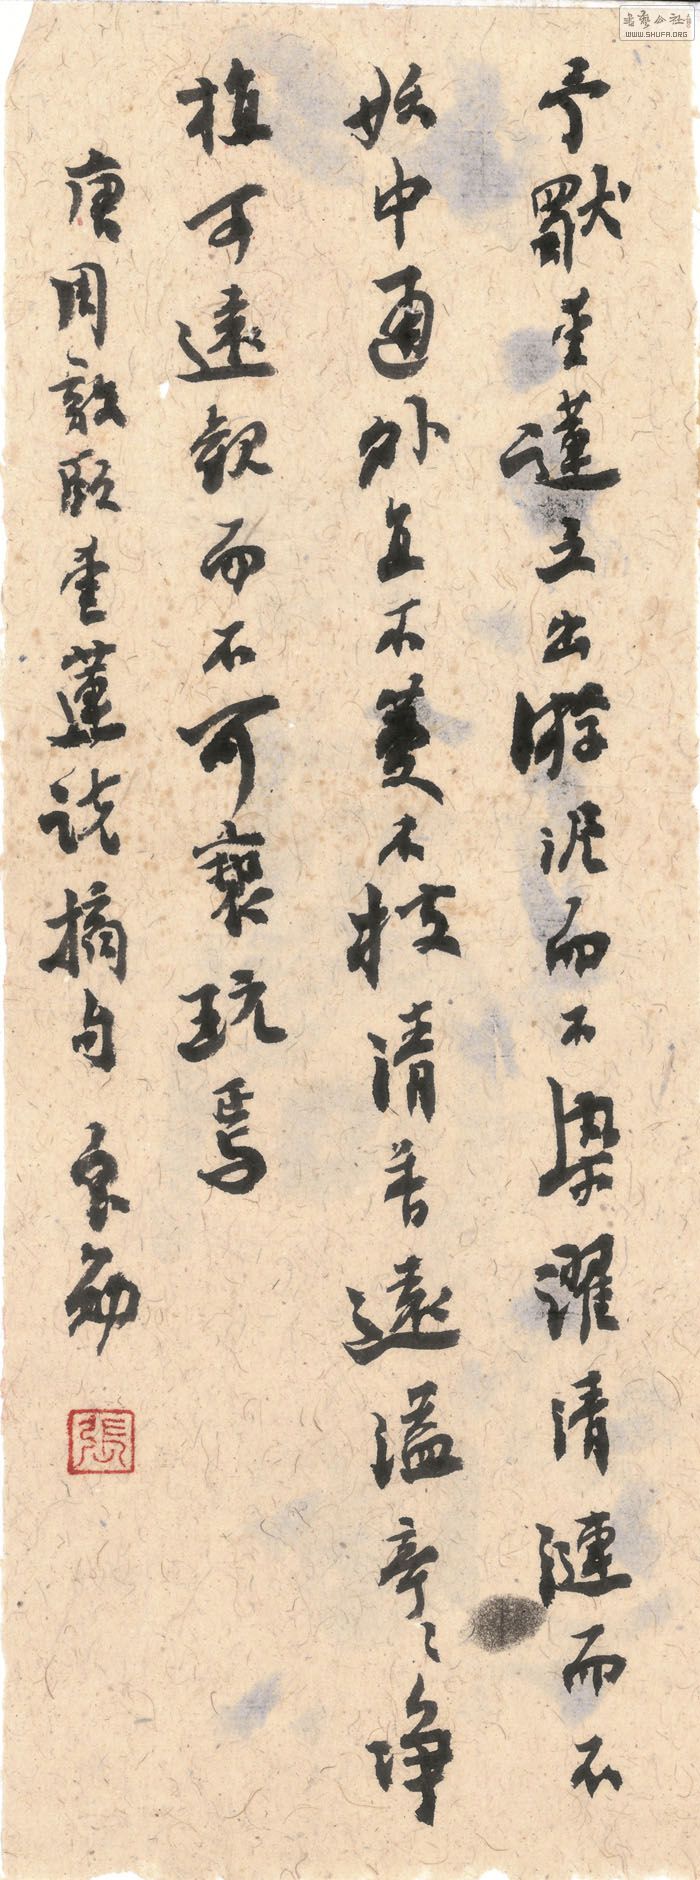 予獨愛蓮之出淤泥而不染濯清漣而不
妖中通外直不蔓不枝清香遠溢亭〻净
植可遠觀而不可褻玩焉
唐周敦頤愛蓮說摘句
張
WWW.SHUFA.ORG